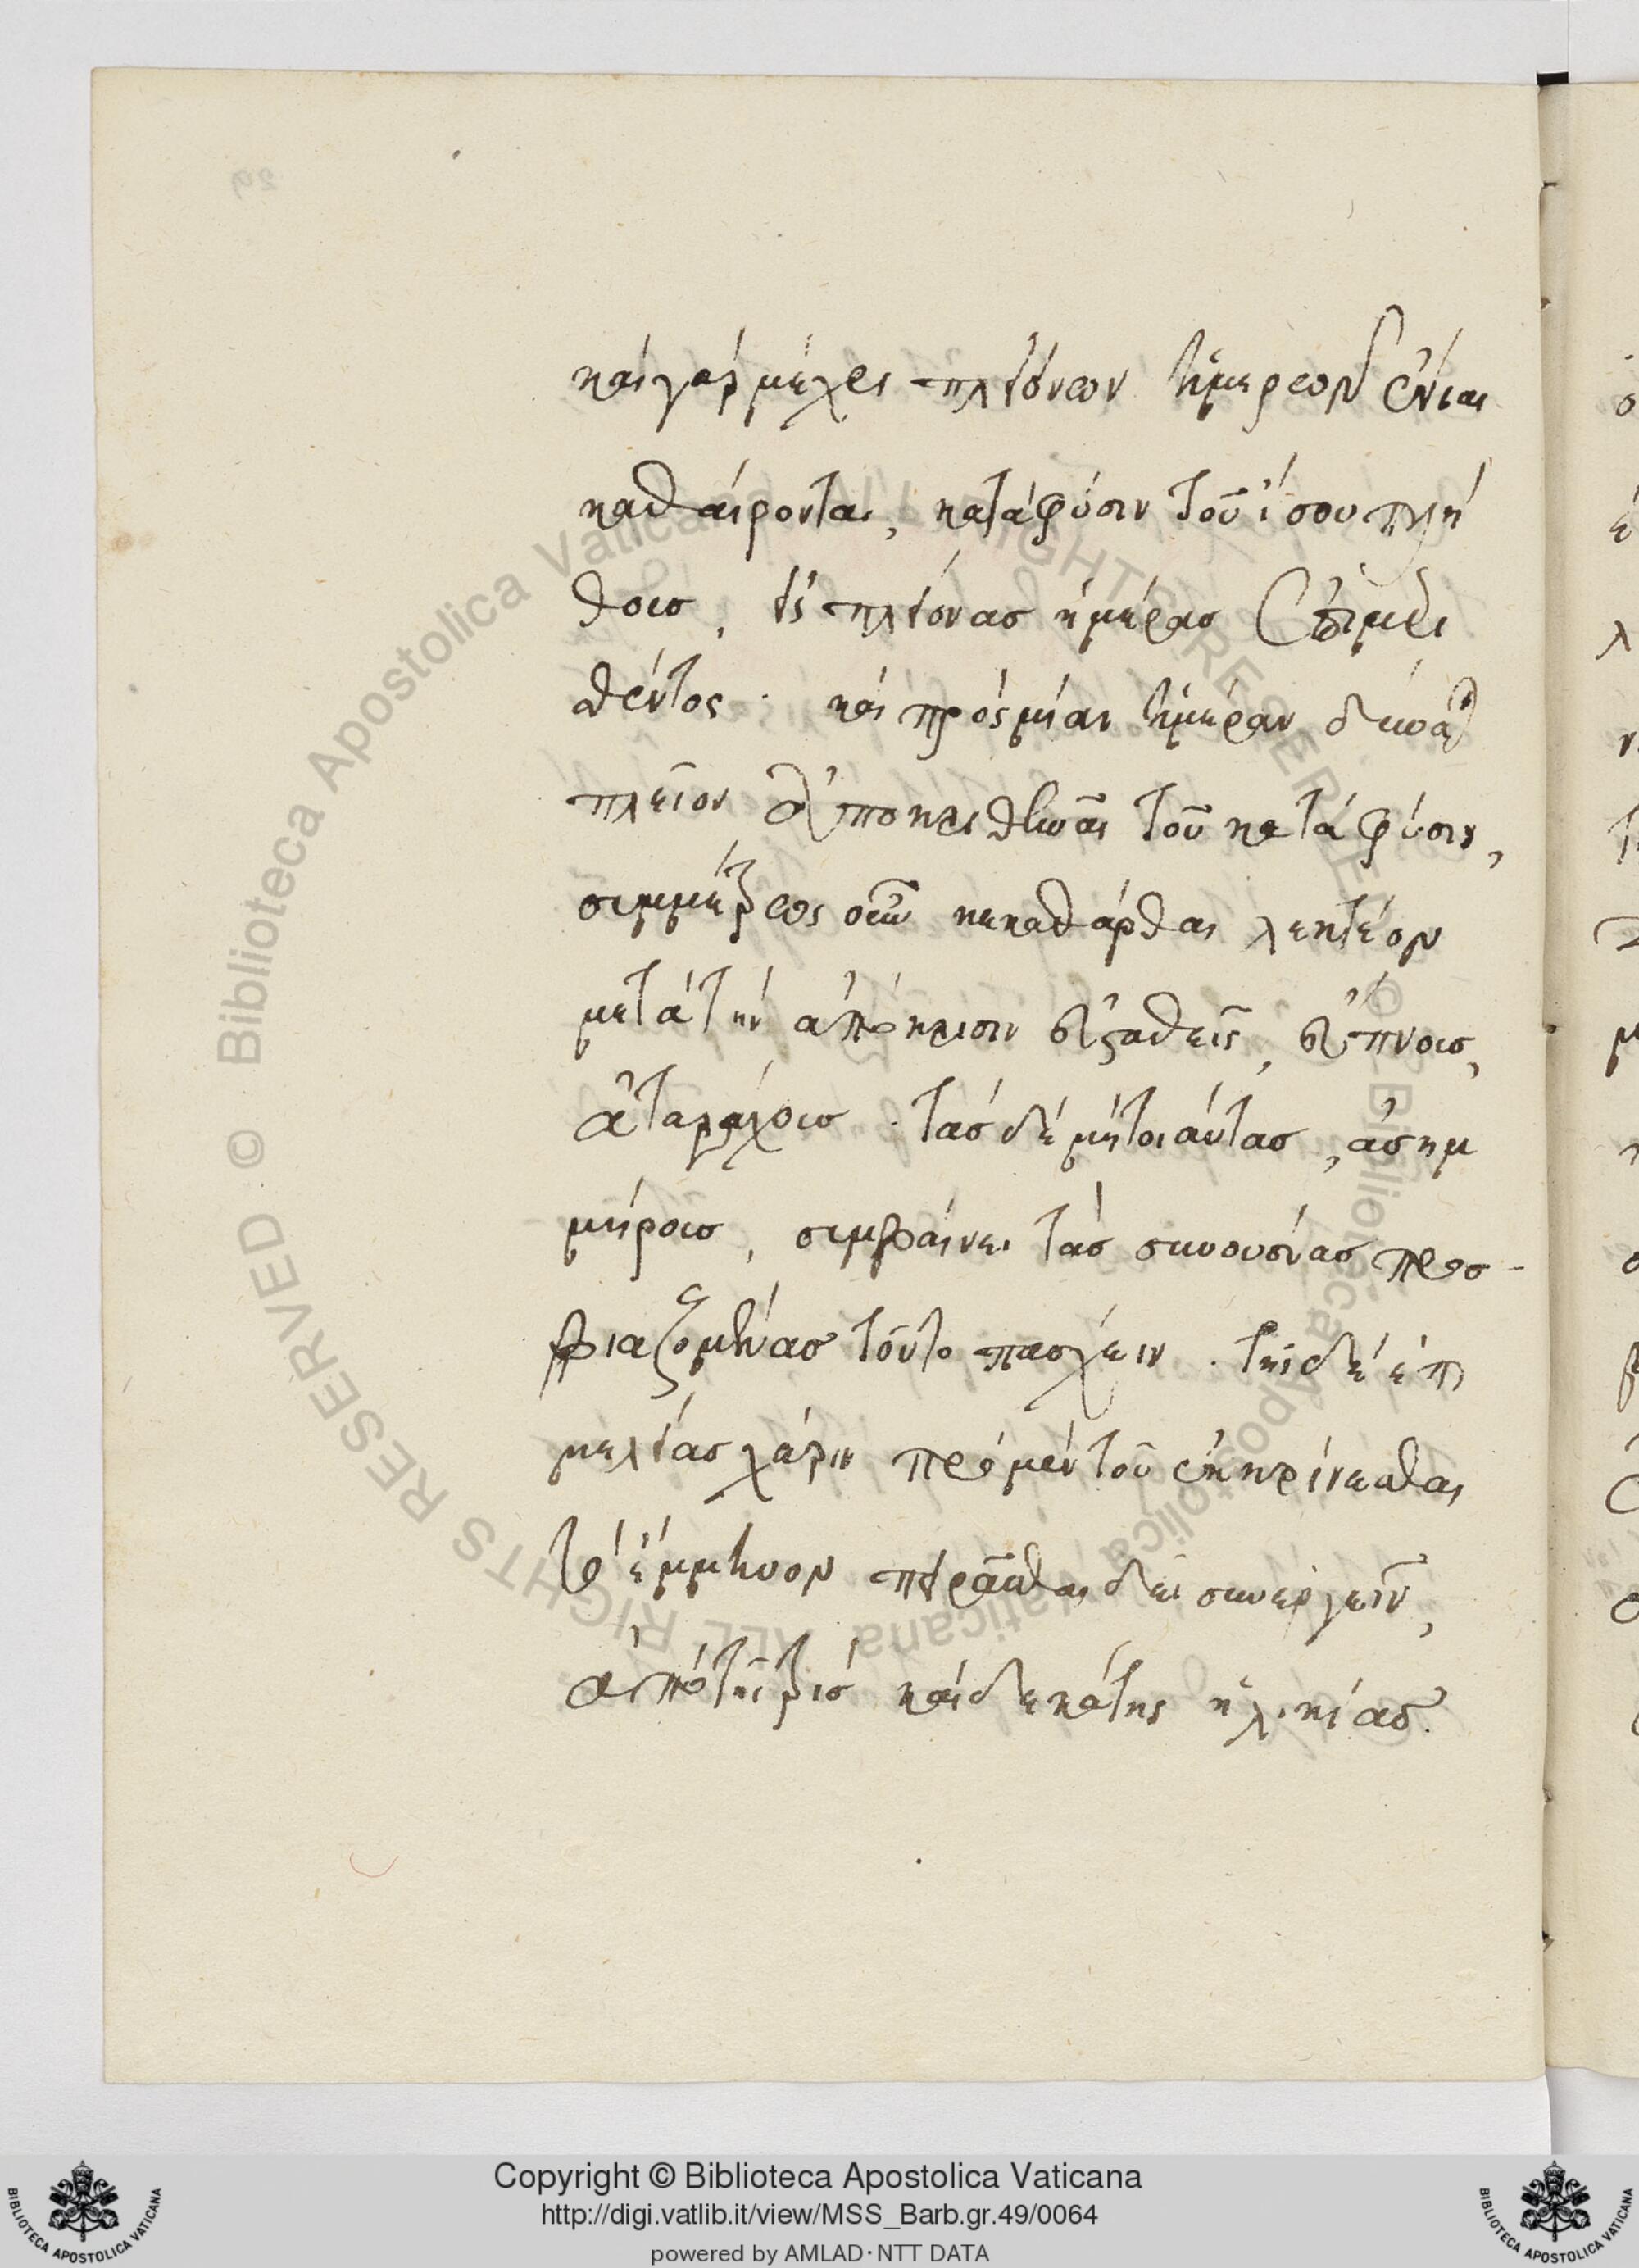 καὶ γὰρ μέχρι πλειόνων ἡμερῶν ἔνιαι
καθαίρονται, κατὰ φύσιν τοῦ ἴσου πλή
θους, εἰς πλείονας ἡμέρας ἐπιμερι
σθέντος· καὶ πρὸς μίαν ἡμέραν δύναται
πλεῖον ἀποκριθῆναι τοῦ κατὰ φύσιν,
συμμέτρως οὖν κεκαθάρθαι λεκτέον
μετὰ τὴν ἀπόκρισιν εὐσταθεῖς, εὔπνους,
ἀταράχους· τὰς δὲ μὴ τοιαύτας, ἀσυμ
μέτρους, συμβαίνει τὰς συνουσίας προσ-
βιαζομένας τοῦτο πάσχειν. τῆς δὲ ἐπι
μελείας χάριν πρὸ μὲν τοῦ ἐκκρίνεσθαι
τὸ ἔμμηνον πειρᾶσθαι δεῖ συνεργεῖν,
ἀπὸ τῆς τρισκαιδεκάτης ἡλικίας.
Copyright © Biblioteca Apostolica Vaticana
http://digi.vatlib.it/view/MSS_Barb.gr.49/0064
powered by AMLAD·NTT DATA
BIBLIOTECA APOSTOLICA VATICANA
BIBLIOTECA APOSTOLICA VATICANA
© Biblioteca Apostolica Vaticana ALL RIGHTS RESERVED
© Biblioteca Apostolica Vaticana ALL RIGHTS RESERVED